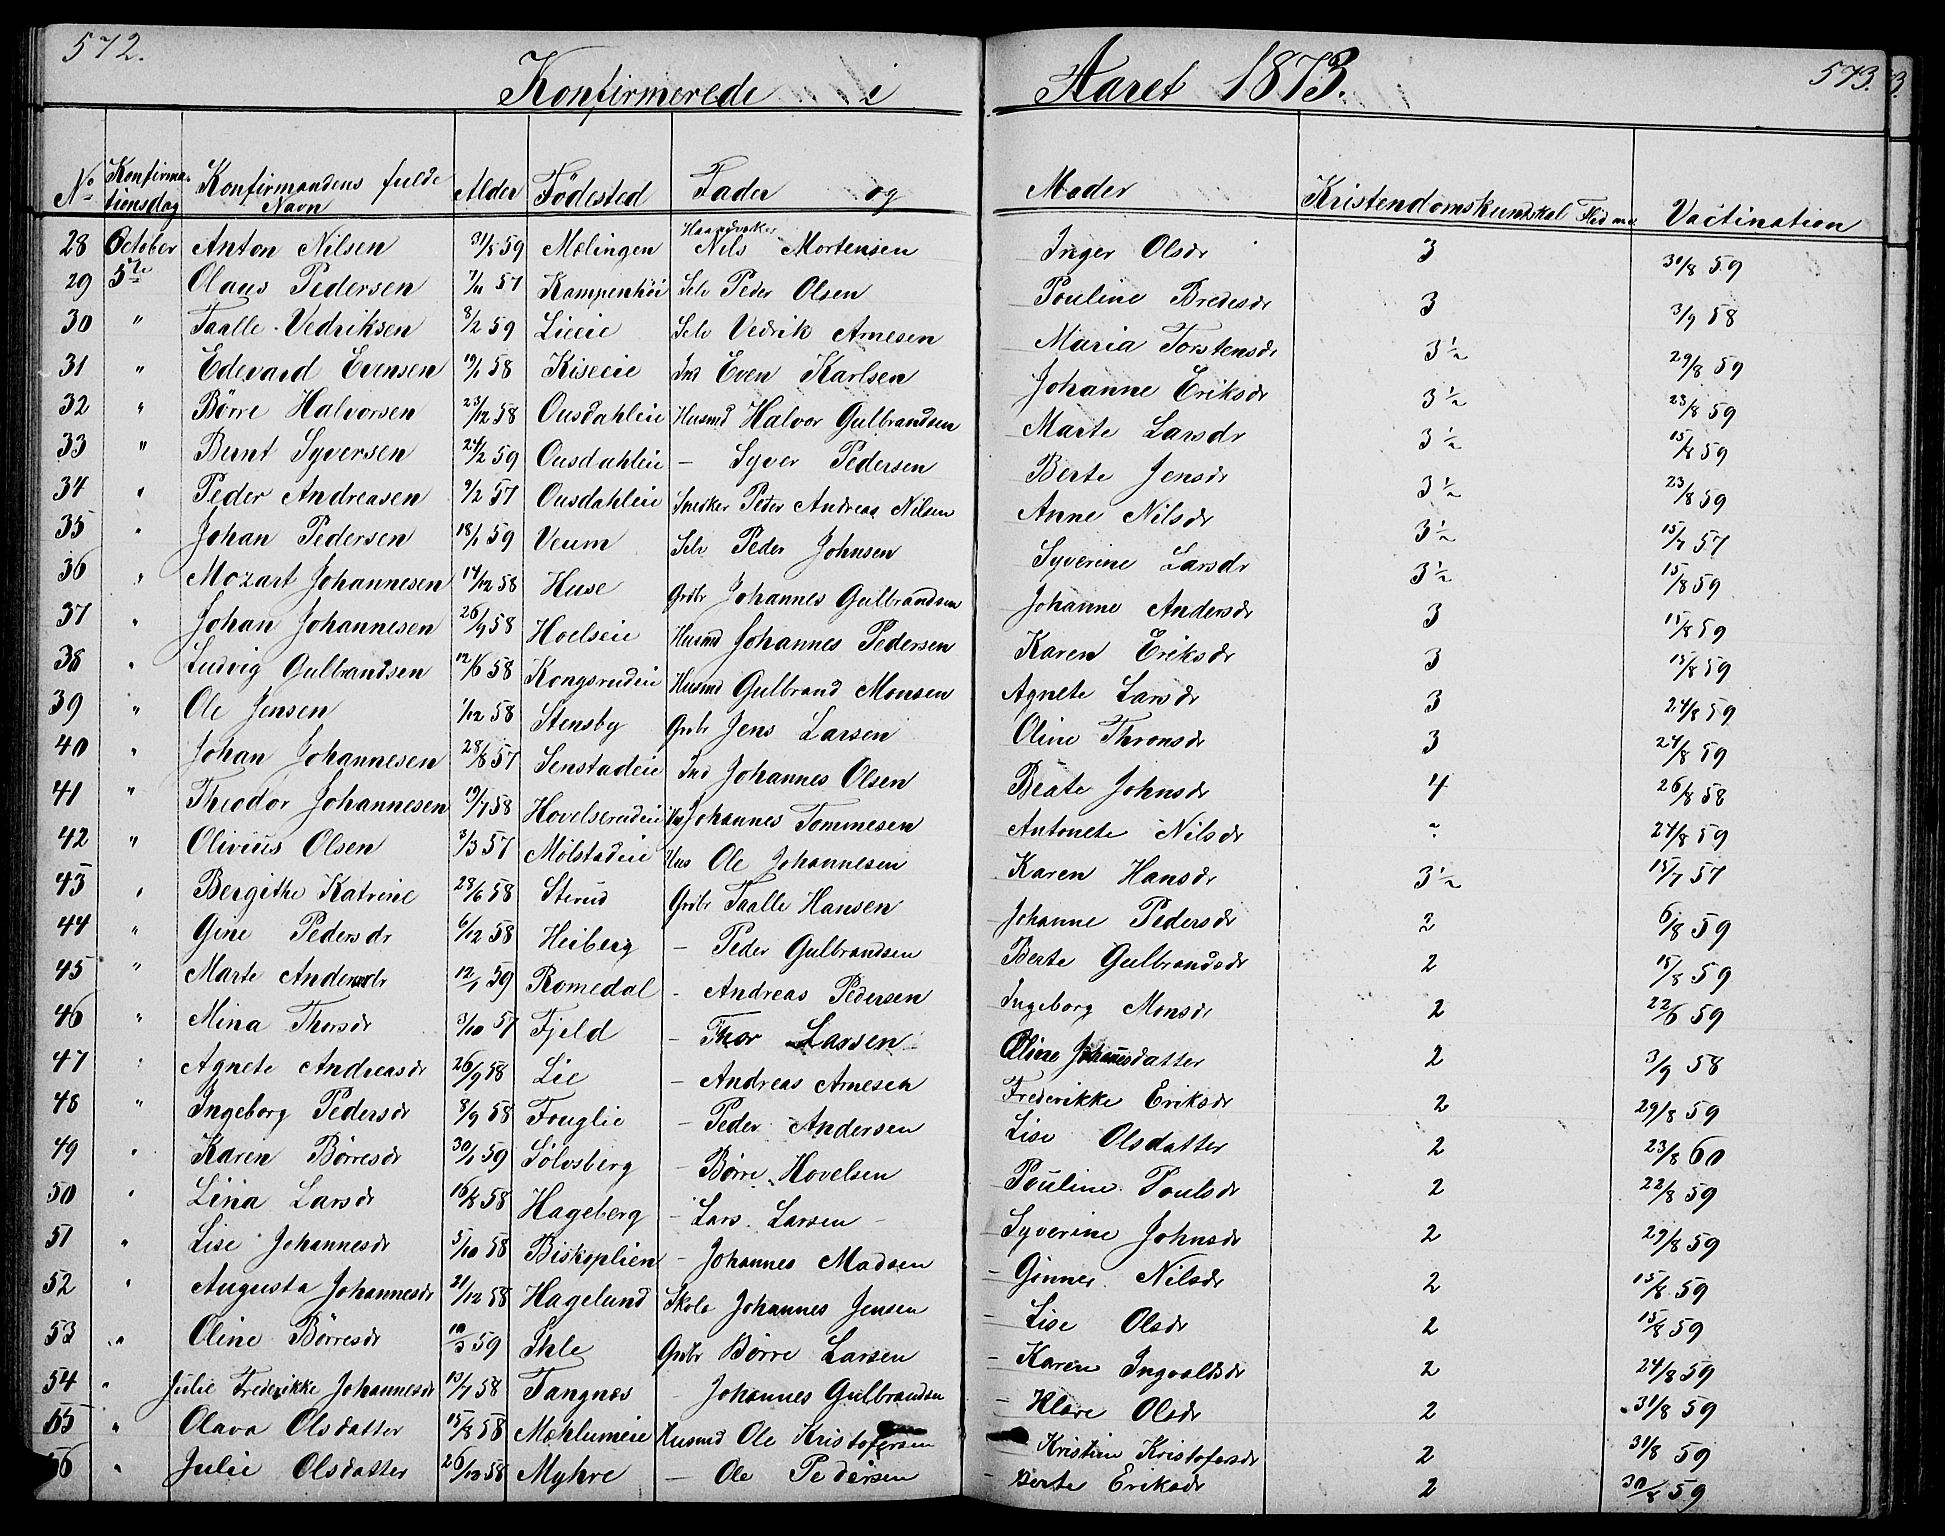 572.
573.
Konfirmerede i Aaret 1873.
No Konfirmationsdag Konfirmandens fulde Navn Alder Födested Fader og Moder Kristendomskundskab Vactination
28 October Anton Nilsen 31/8 59 Mælingen Haandverker Nils Mortensen Inger Olsdr 3 30/8 59
29 5te Olaus Pedersen 7/11 57 Kampenhöi Selv Peder Olsen Pouline Bredesdr 3 3/9 58
30 " Taalle Vedriksen 8/2 59 Lieeie Selv Vedrik Arnesen Maria Torstensdr 3½ 29/8 59
31 " Edevard Evensen 19/1 58 Kiseeie Ind Even Karlsen Johanne Eriksdr 3½ 23/8 59
32 " Börre Halvorsen 23/12 58 Ousdahleie Husmd Halvor Gulbrandsen Marte Larsdr 3½ 15/8 59
33 " Bernt Syversen 24/2 59 Ousdahleie – Syver Pedersen Berte Jensdr 3½ 23/8 59
34 " Peder Andreasen 9/2 57 Ousdahleie Snedker Peder Andreas Nilsen Anne Nilsdr 3½ 15/7 57
35 " Johan Pedersen 18/1 59 Veum Selv Peder Johnsen Syverine Larsdr 3½ 15/8 59
36 " Mozart Johannesen 14/12 58 Huse Grdbr Johannes Gulbrandsen Johanne Andersdr 3 11/8 59
37 " Johan Johannesen 26/9 58 Hoelseie Husmd Johannes Pedersen Karen Eriksdr 3 15/8 59
38 " Ludvig Gulbrandsen 12/6 58 Kongsrudeie Husmd Gulbrand Monsen Agnete Larsdr 3 24/8 59
39 " Ole Jensen 1/12 58 Stensby Grdbr Jens Larsen Oline Thronsdr 3 24/8 59
40 " Johan Johannesen 28/8 57 Senstadeie Ind Johannes Olsen Beate Johnsdr 4 26/8 58
41 " Theodor Johannesen 19/7 58 Hovelsrudeie Johannes Tommesen Antonete Nilsdr " 24/8 59
42 " Olivius Olsen 3/3 57 Mölstadeie Ole Johannesen Karen Hansdr 3½ 15/7 57
43 " Bergithe Katrine 28/6 58 Sterud Grdbr Taalle Hansen Johanne Pedersdr 2 6/8 59
44 " Gine Pedersdr 6/12 58 Heiberg – Peder Gulbrandsen Berte Gulbrandsdr 2 15/8 59
45 " Marte Andersdr 12/1 59 Romedal – Andreas Pedersen Ingeborg Monsdr 2 22/6 59
46 " Mina Thorsdr 3/10 57 Fjeld – Thor Larsen Oline Johannesdatter 2 3/9 58
47 " Agnete Andreasdr 26/9 58 Lie – Andreas Arnesen Frederikke Eriksdr 2 29/8 59
48 " Ingeborg Pedersdr 8/9 58 Fouglie – Peder Andersen Lise Olsdatter 2 23/8 60
49 " Karen Börresdr 30/1 59 Sölvsberg – Börre Hovelsen Pouline Poulsdr 2 22/8 59
50 " Lina Larsdr 16/8 58 Hageberg – Lars Larsen – Syverine Johnsdr 2 29/8 59
51 " Lise Johannesdr 5/10 58 Biskoplien – Johannes Madsen – Gunner Nilsdr 2 15/8 59
52 " Augusta Johannesdr 21/12 58 Hagelund Skolo Johannes Jensen – Lise Olsdr 2 15/8 59
53 " Oline Börresdr 10/3 59 Ihle Grdbr Börre Larsen – Karen Ingvaldsdr 2 24/8 59
54 " Julie Frederikke Johannesdr 13/7 58 Tangnæs – Johannes Gulbrandsen – Klare Olsdr 2 31/8 59
55 " Olava Olsdatter 15/8 58 Mæhlumeie Husmd Ole Kristofersen – Kristine Kristofersdr 2 31/8 59
56 " Julie Olsdatter 26/12 58 Myhre – Ole Pedersen – Berte Eriksdr 2 30/8 59